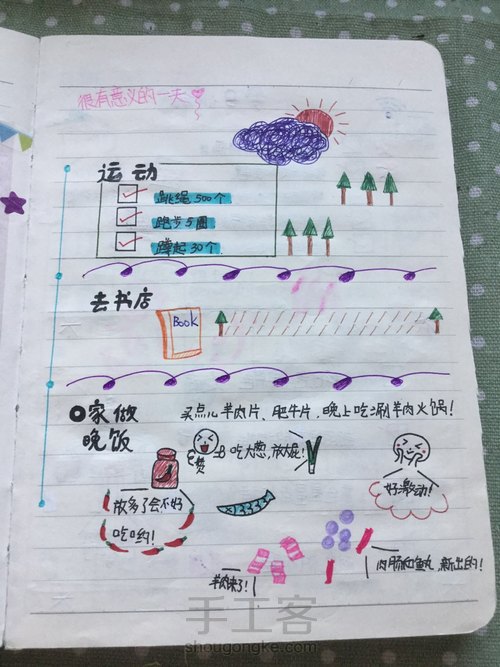 很有意义的一天
运动
跳绳500个
跑步5圈
蹲起30个
去书店
Book
回家做
晚饭
买点儿羊肉片、肥牛片,晚上吃涮羊肉火锅!
赞
吃大葱,放大屁!
好激动!
放多了会不好
吃哟!
羊肉来了!
肉肠和鱼丸,新出的!
手工客
shougongke.com